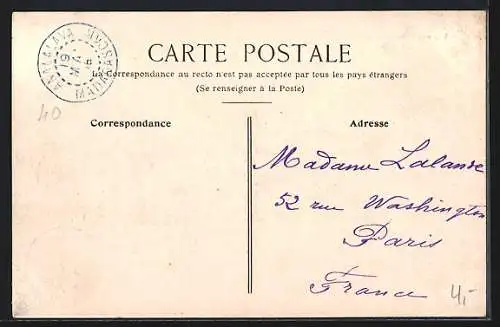 ANALALAVA
MADAGASCAR
CARTE POSTALE
La Correspondance au recto n'est pas acceptée par tous les pays étrangers
(Se renseigner à la Poste)
40
Correspondance
Adresse
Madame Lalande
52 rue Washington
Paris
France
4,-